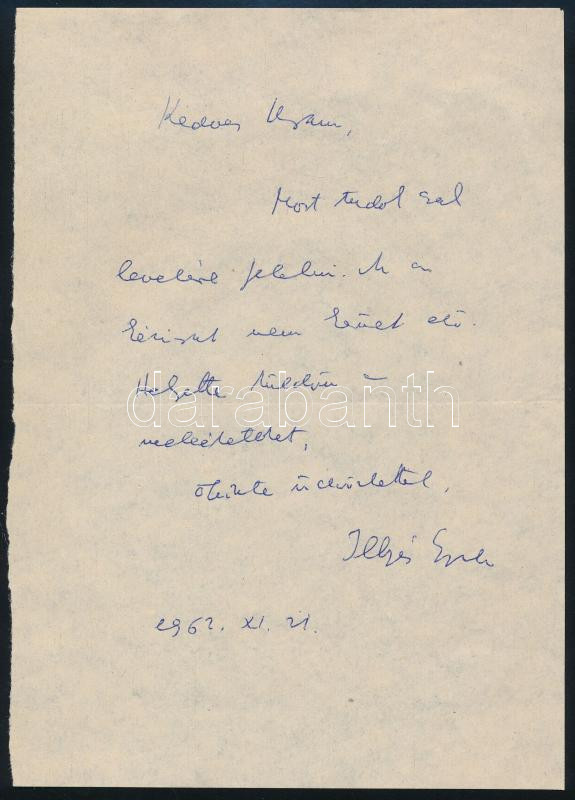 Kedves Uram,
Most tudok csak
levelére felelni. A
nem
Helyette küldöm a
mellékelteket,
Őszinte üdvözlettel,
Illyés Gyula
1962. XI. 21.
darabanth